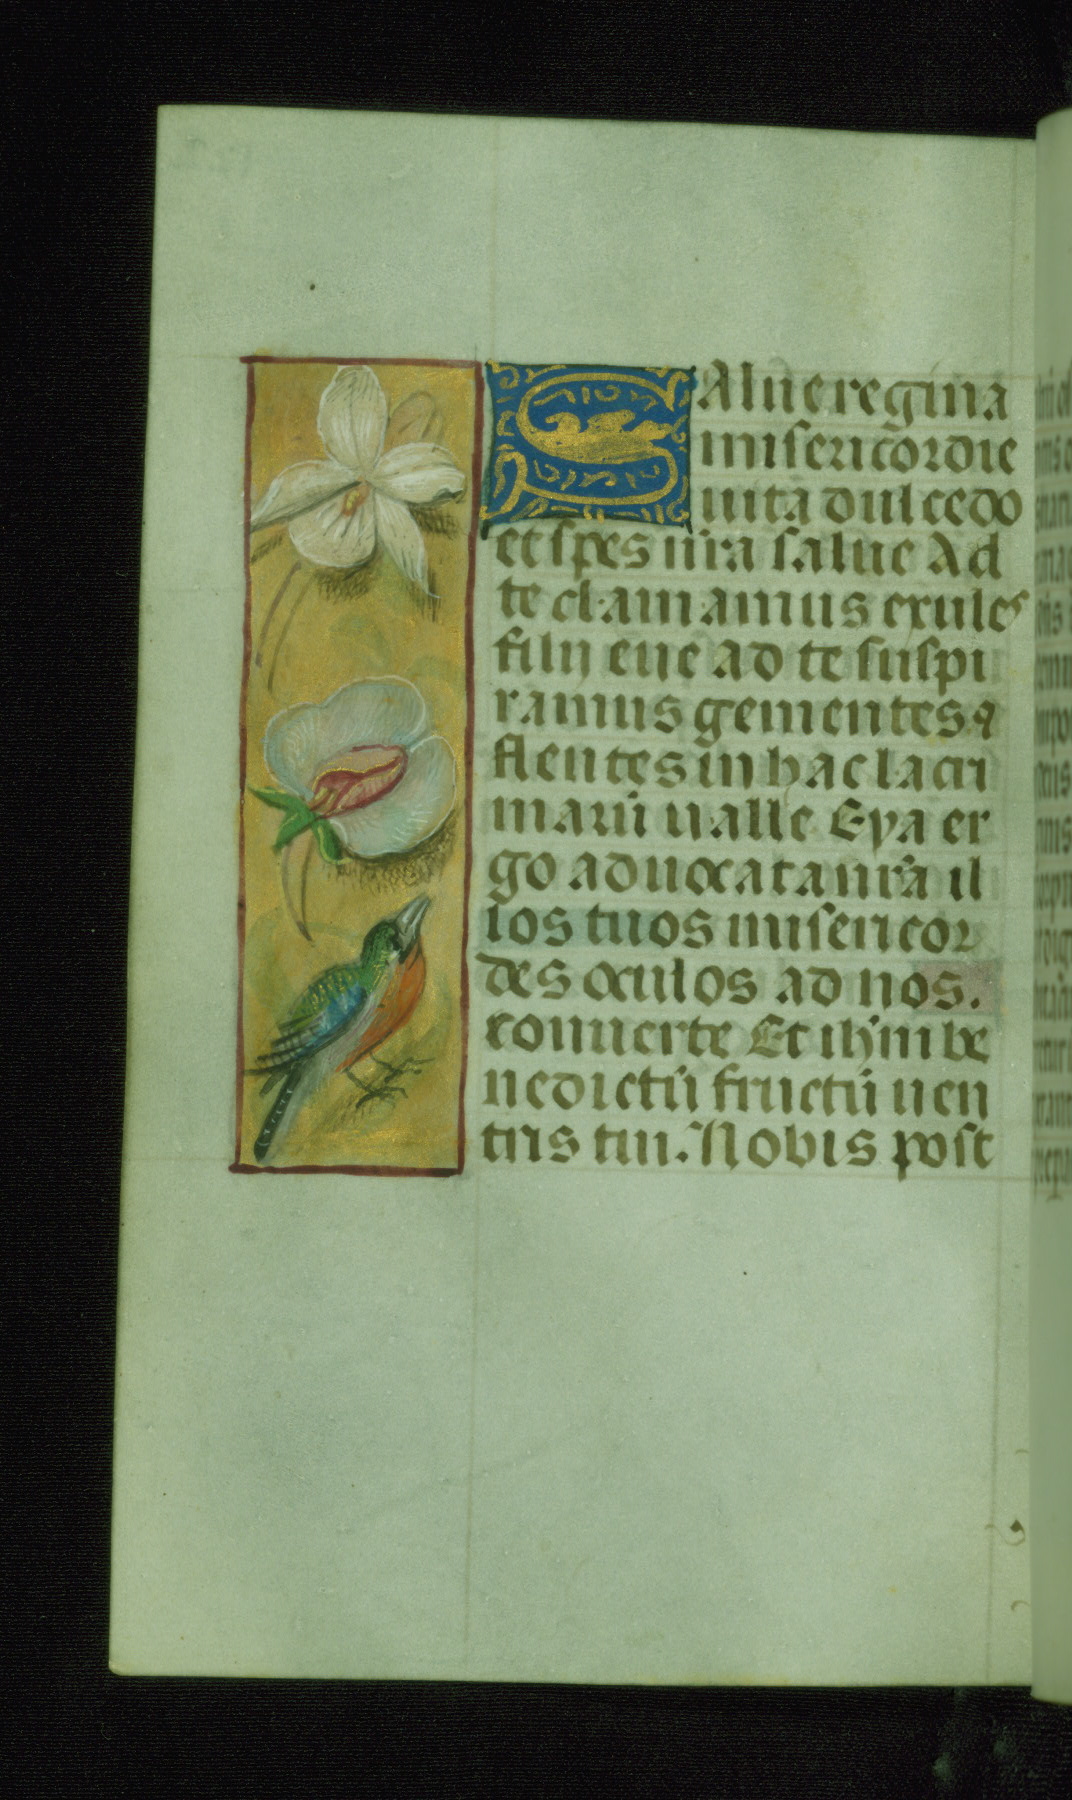 SAlue regina
misericordie
uita dulcedo
et spes n̄ra salue Ad
te clamamus exules
filij eue ad te suspi
ramus gementes ⁊
flentes in hac lacri
marū ualle Eya er
go aduocata nr̄a il
los tuos misericor
des oculos ad nos.
conuerte Et ih̄m be
nedictū fructū uen
tris tui. Nobis post